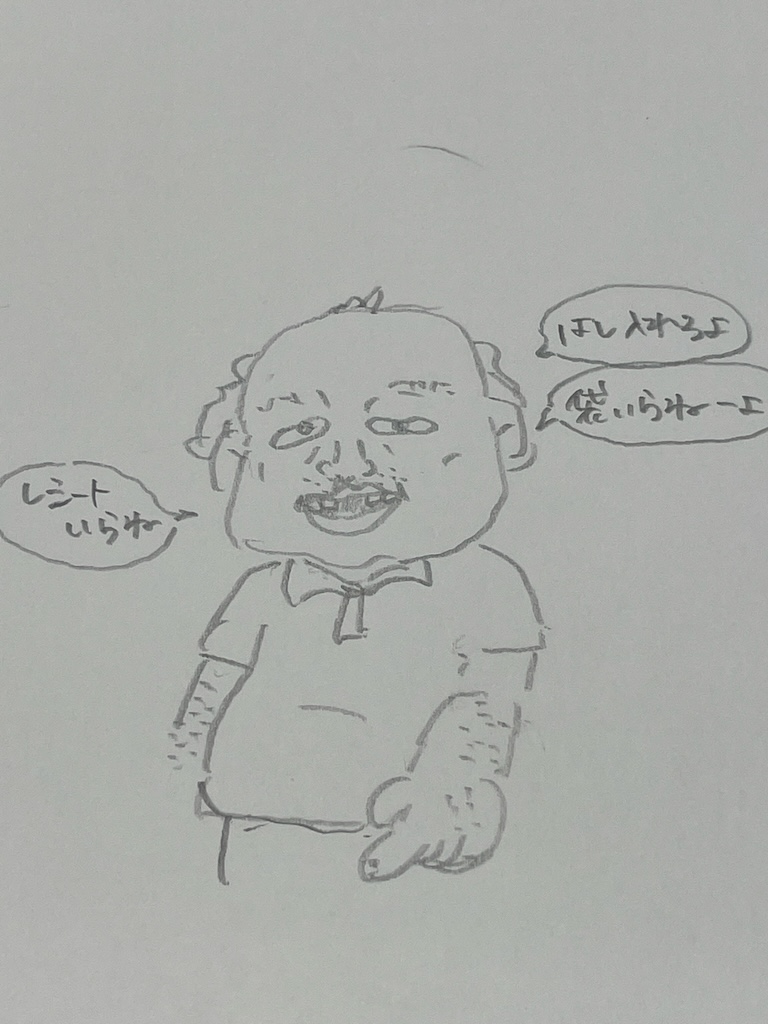 はし入れろよ
袋いらねーよ
レシート
いらね